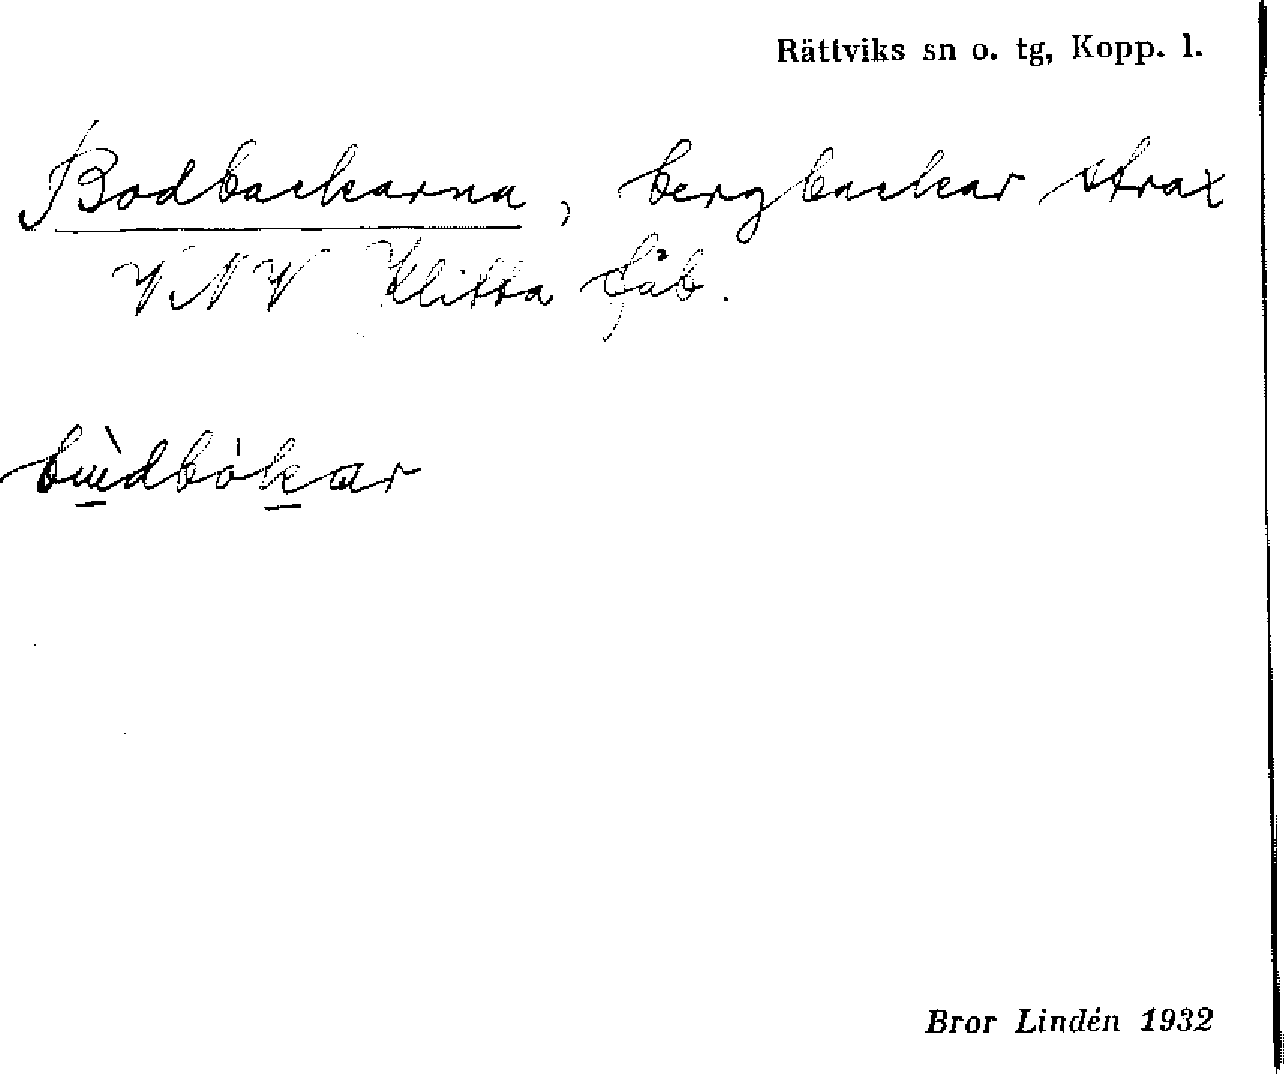 Rättviks sn o. tg, Kopp. l.
Bodbackarna, bergbackar strax
VNV Klitta fäb.
bùdbókar
Bror Lindén 1932